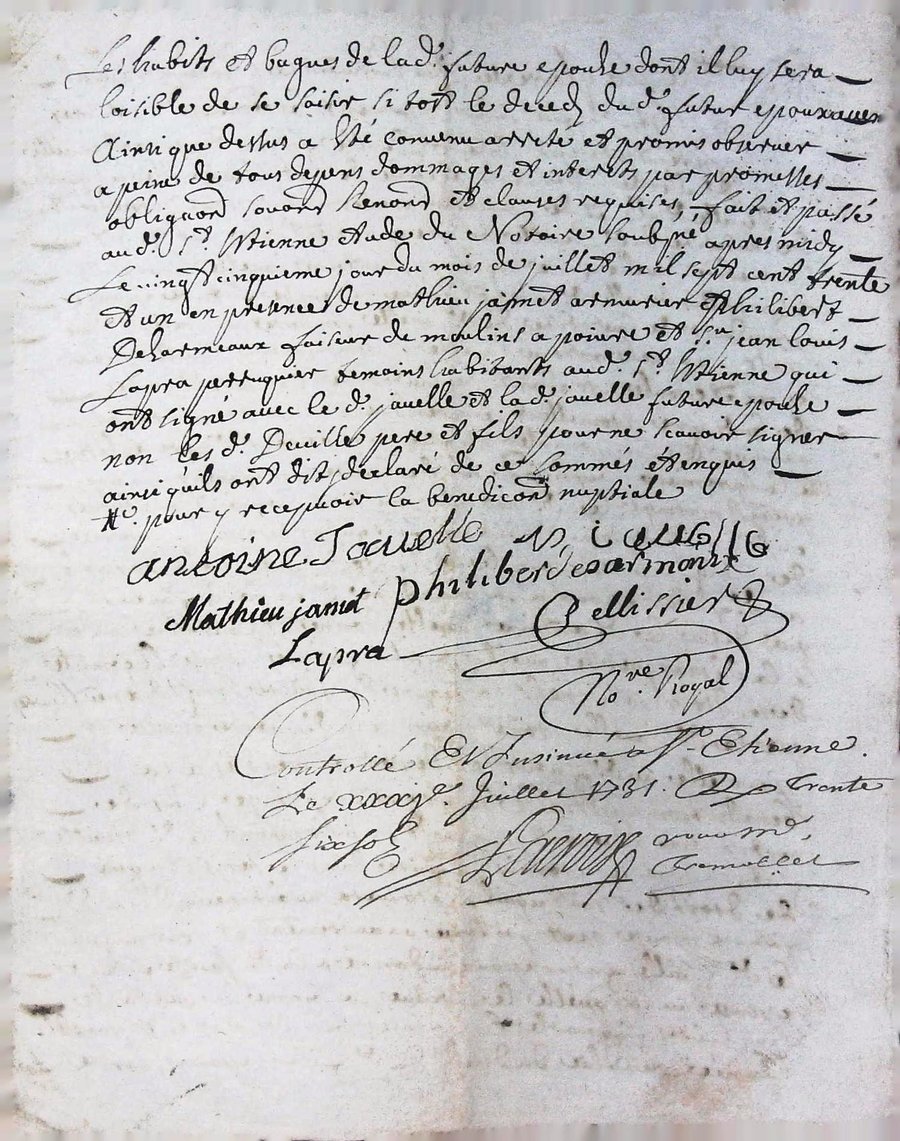 Les habits et bagues de lad. future epouse dont il luy sera
loisible de se saisir si tost le deceds dud. futur epoux
Ainsi que dessus a Eté convenu arreté et promis observer
a peine de tous depens dommages et interets par promesses
obligaons et clauses requises, fait et passé
aud. St. Etienne etude du Notaire soubsné apres midy
Le vingt cinquieme jour du mois de juillet mil sept cent trente
et un en presence de mathieu jamet armurier et philibert
Deharmeaux faiseur de moulins a poivre et sr. jean louis
Lapra perruquier temoins habitants aud. St. Etienne qui
ont signé avec le d. javelle et lad. javelle future epouse
non les d. Deville pere et fils pour ne scavoir signer
ainsi quils ont dit, declaré de ce sommés et enquis
pour y recepvoir la benediction nuptiale
antoine Jauelle iauelle
Mathieu jamet philiber desarmoux
Lapra Pellissier
Nore. Royal
Controllé Et Insinué a St. Etienne.
Le xxxje. Juillet 1731. R trente
six sols